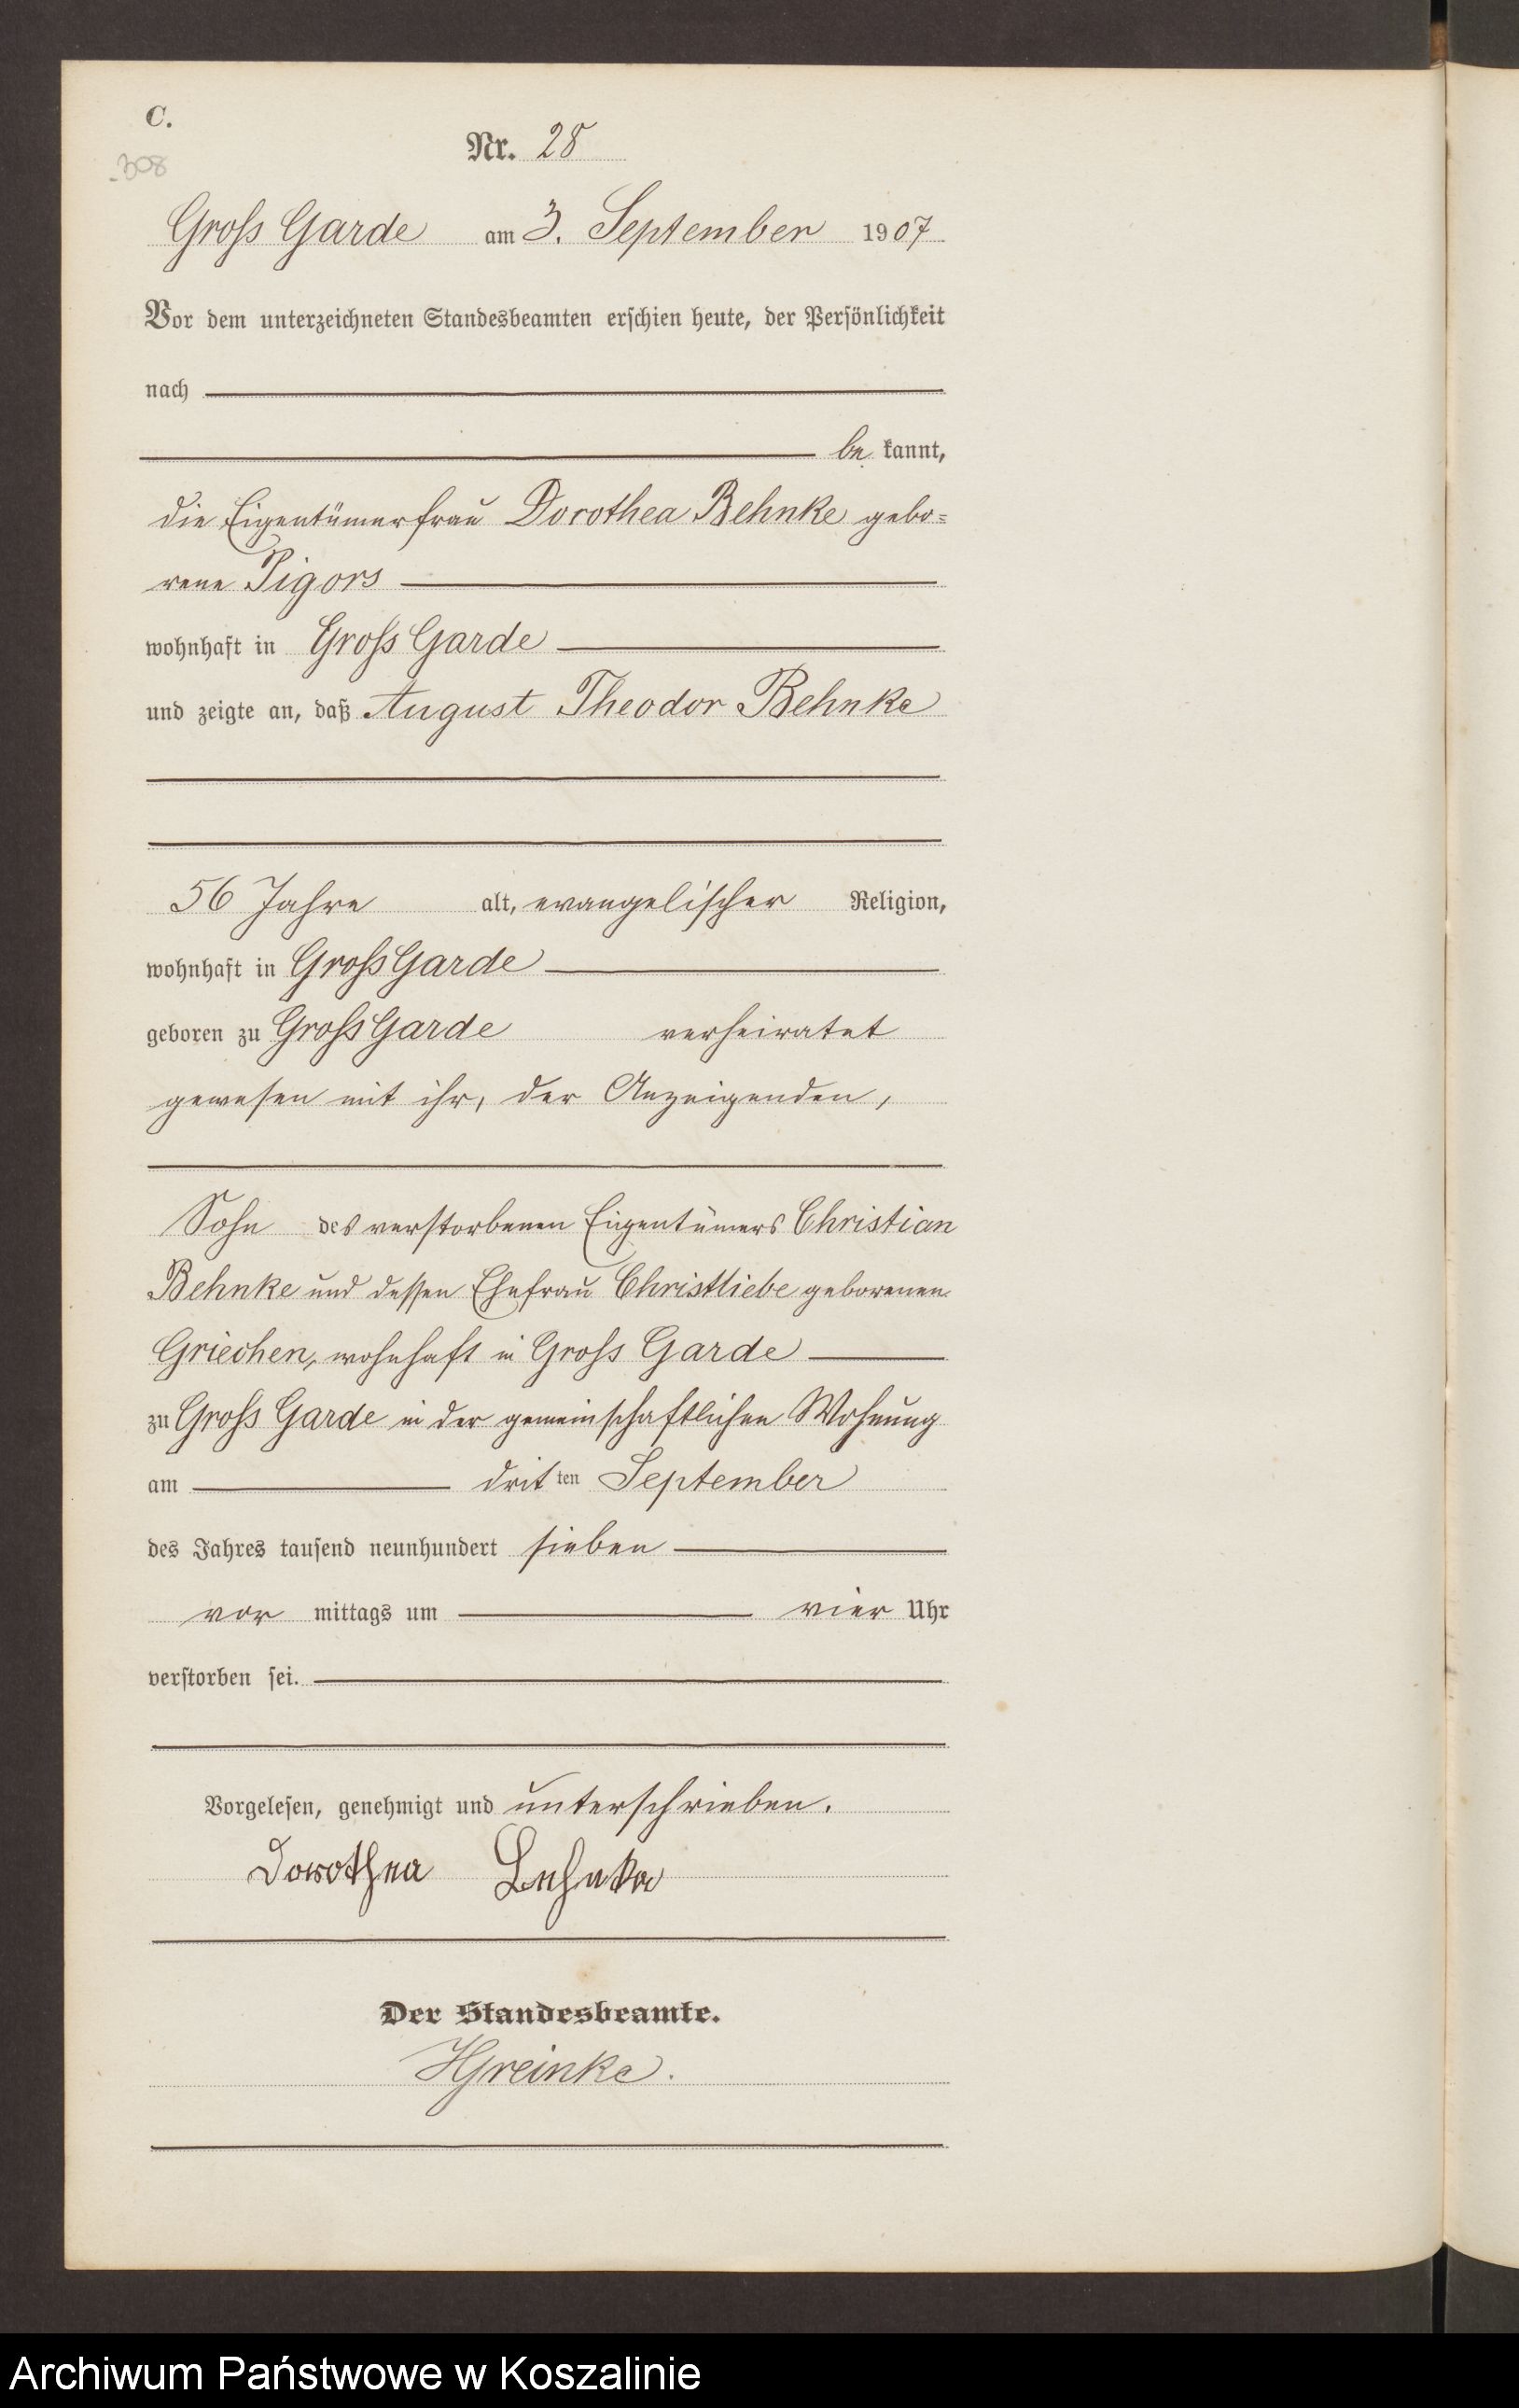 C.
308
Nr. 28
Gross Garde am 3. September 1907
Vor dem unterzeichneten Standesbeamten erschien heute, der Persönlichkeit
nach
be kannt,
die Eigentümerfrau Dorothea Behnke gebo=
rene Pigors
wohnhaft in Gross Garde
und zeigte an, daß August Theodor Behnke
56 Jahre alt, evangelischer Religion,
wohnhaft in Gross Garde
geboren zu Gross Garde verheiratet
gewesen mit ihr, der Anzeigenden,
Sohn des verstorbenen Eigentümers Christian
Behnke und dessen Ehefrau Christliebe geborenen
Griechen, wohnhaft in Gross Garde
zu Gross Garde in der gemeinschaftlichen Wohnung
am drit ten September
des Jahres tausend neunhundert sieben
vor mittags um vier Uhr
verstorben sei.
Vorgelesen, genehmigt und unterschrieben.
Dorothea Behnke
Der Standesbeamte.
HGreinke.
Archiwum Państwowe w Koszalinie